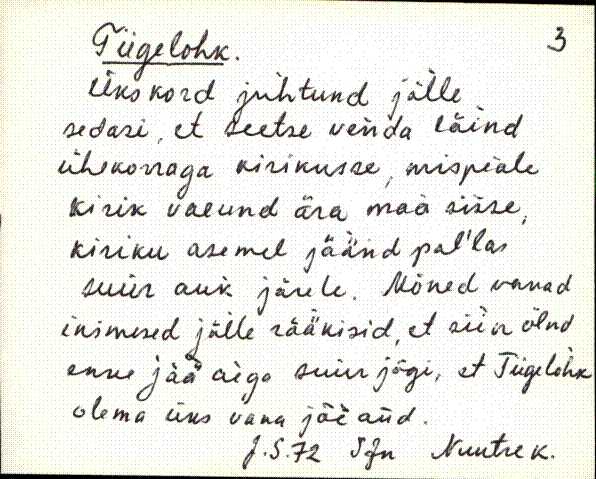 3
Tiigelohk.
Üks kord juhtund jälle
sedasi, et seetse venda läind
ühekorraga kirikusse, mispeale
kirik vaeund ära maa sisse,
kiriku asemel jäänd pal'las
suur auk järele. Mõned vanad
inimesed jälle rääkisid, et siin olnd
enne jää aega suur jõgi, et Tiigelohk
olema üks vana jõe aŭd.
J.S.72 Sjn Nuutre k.